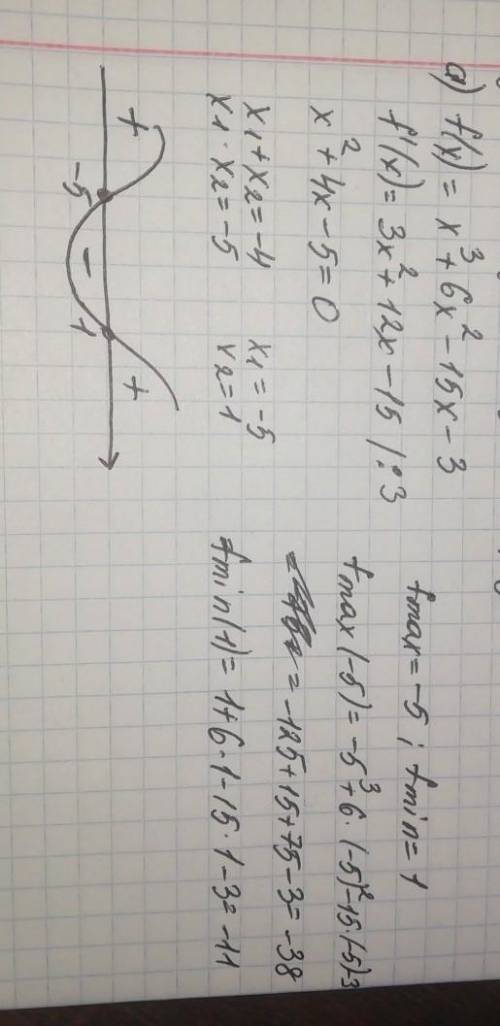 a) f(x) = x³ + 6x² - 15x - 3
f'(x) = 3x² + 12x - 15 /:3
x² + 4x - 5 = 0
x1 + x2 = -4 x1 = -5
x1 · x2 = -5 x2 = 1
+ - +
-5 1
fmax = -5 ; fmin = 1
fmax(-5) = -5³ + 6 · (-5)² - 15 · (-5) - 3
= -125 + 15 + 75 - 3 = -38
fmin(1) = 1 + 6 · 1 - 15 · 1 - 3 = -11